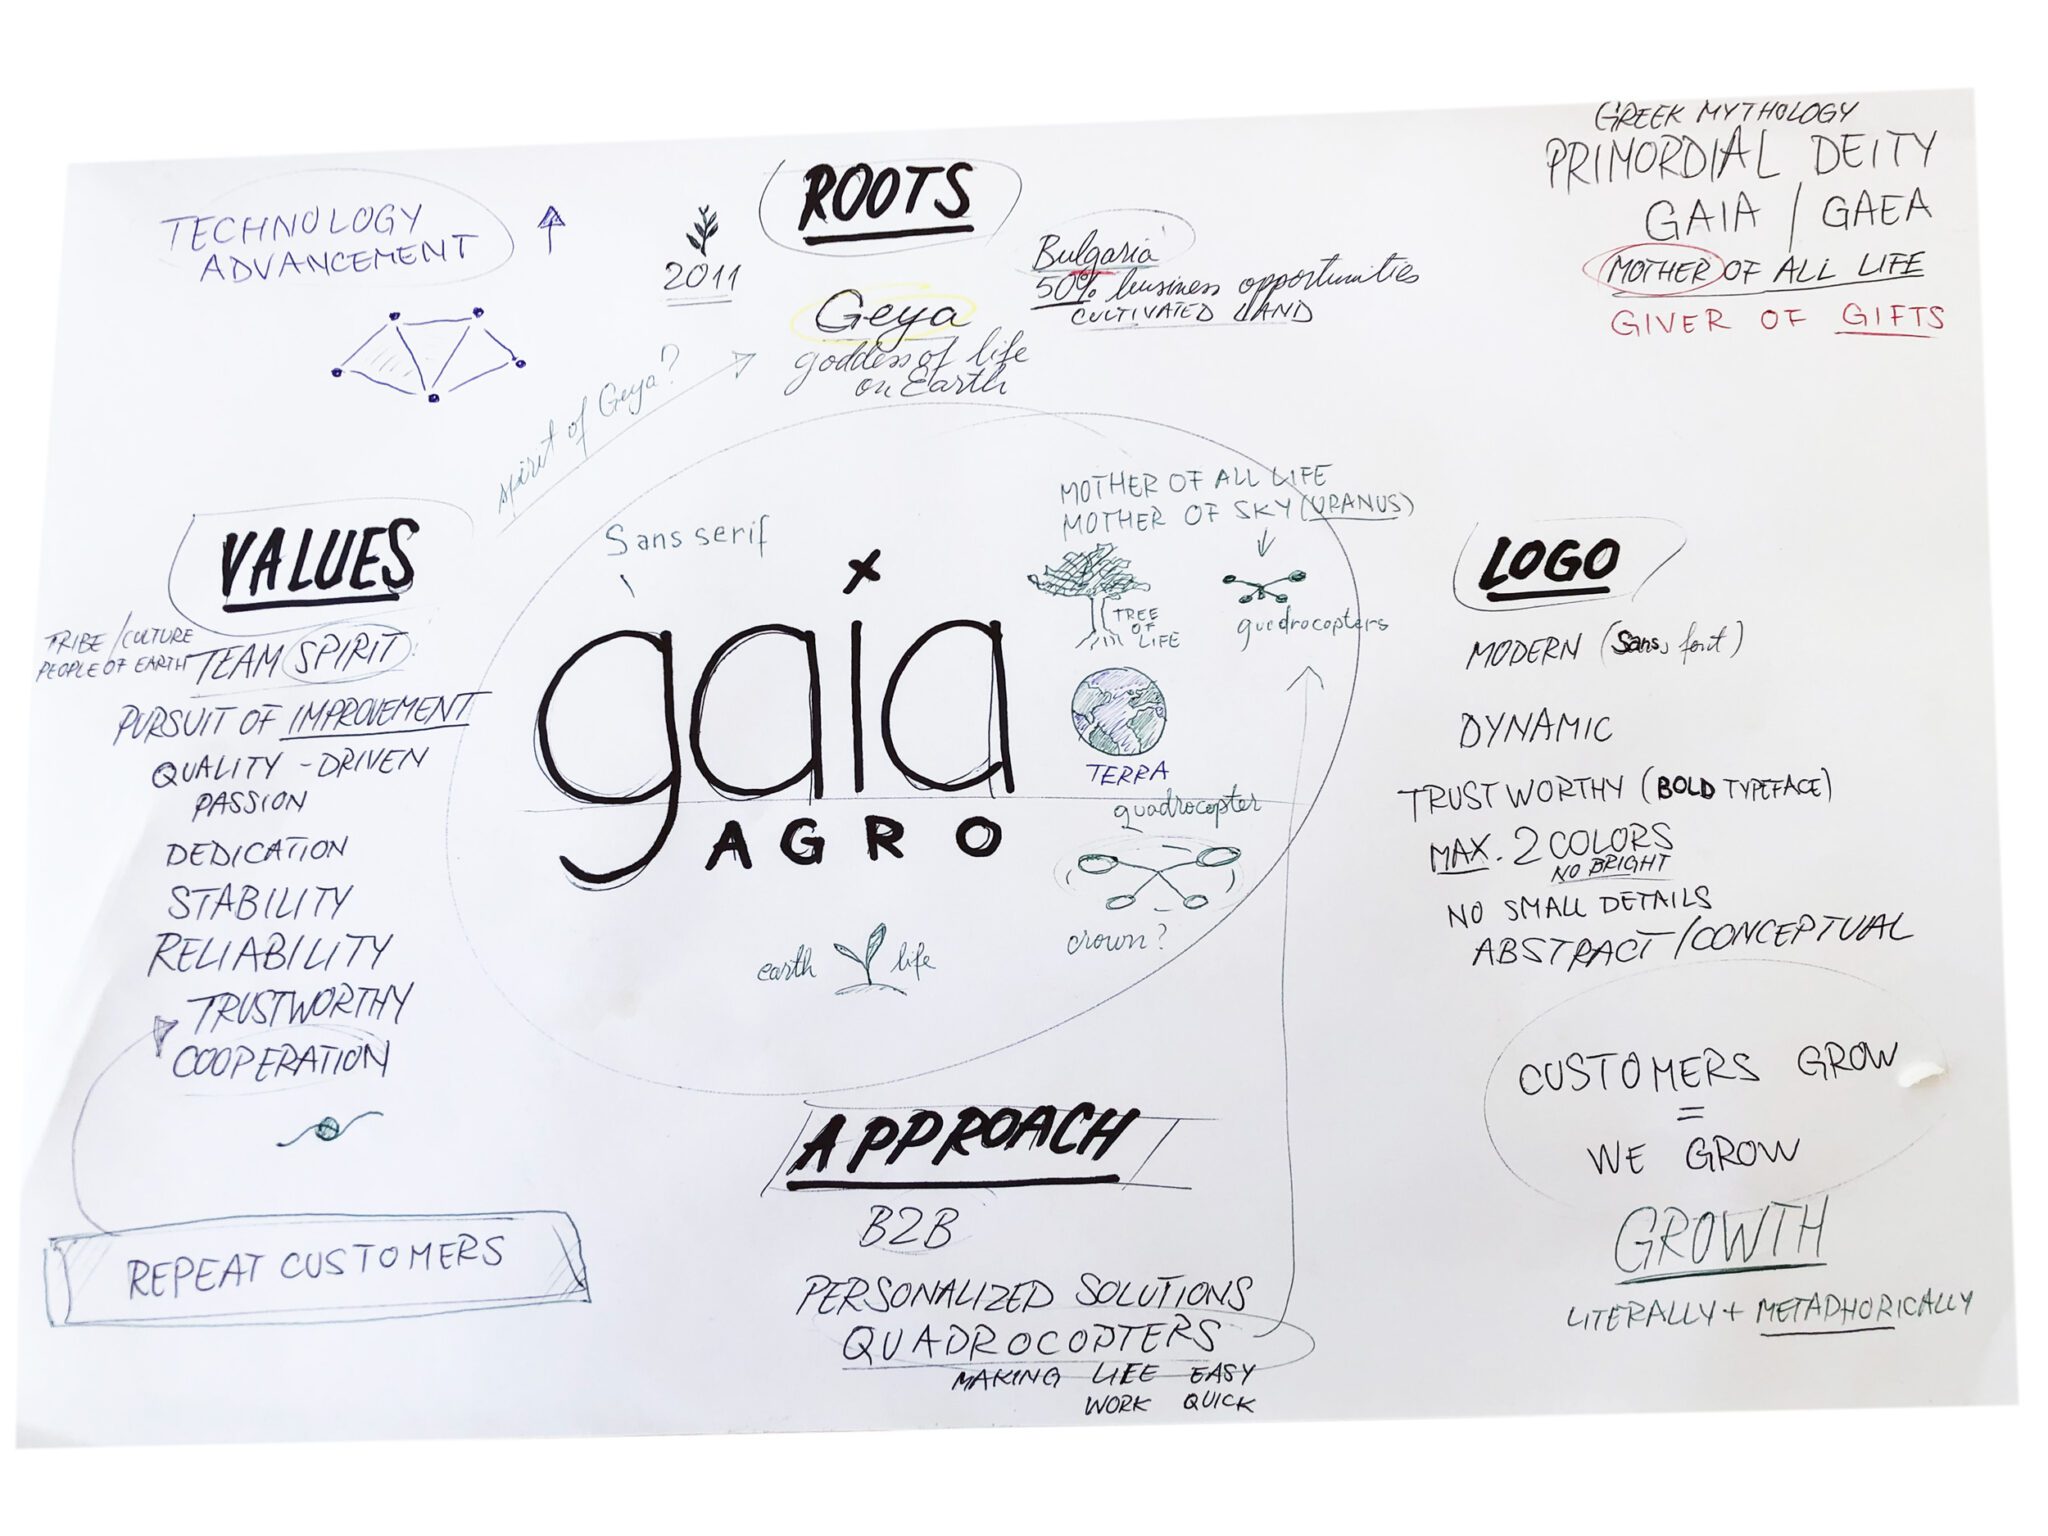 GREEK MYTHOLOGY
PRIMORDIAL DEITY
GAIA / GAEA
MOTHER OF ALL LIFE
GIVER OF GIFTS
TECHNOLOGY
ADVANCEMENT
ROOTS
2011
Geya
goddess of life
on Earth
Bulgaria
50% business opportunities
CULTIVATED LAND
spirit of Geya?
VALUES
TRIBE / CULTURE
PEOPLE OF EARTH
TEAM SPIRIT
PURSUIT OF IMPROVEMENT
QUALITY - DRIVEN
PASSION
DEDICATION
STABILITY
RELIABILITY
TRUSTWORTHY
COOPERATION
REPEAT CUSTOMERS
Sans serif
gaia
AGRO
MOTHER OF ALL LIFE
MOTHER OF SKY (URANUS)
TREE
OF
LIFE
quedrocopters
TERRA
quadrocopter
crown?
earth life
LOGO
MODERN (Sans, font)
DYNAMIC
TRUSTWORTHY (BOLD TYPEFACE)
MAX. 2 COLORS
NO BRIGHT
NO SMALL DETAILS
ABSTRACT / CONCEPTUAL
CUSTOMERS GROW
=
WE GROW
GROWTH
LITERALLY + METAPHORICALLY
APPROACH
B2B
PERSONALIZED SOLUTIONS
QUADROCOPTERS
MAKING LIFE EASY
WORK QUICK